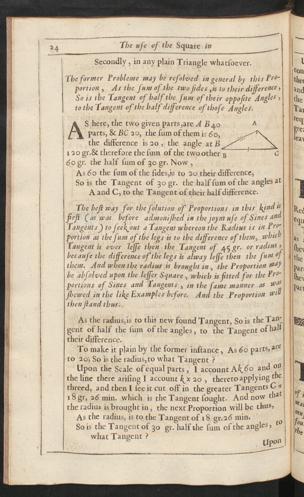 24 The use of the Square in
Secondly, in any plain Triangle whatsoever.
The former Probleme may be resolved in general by this Pro-
portion, As the sum of the two sides, is to their difference,
So is the Tangent of half the sum of their opposite Angles,
to the Tangent of half the difference of those Angles.
AS here, the two given parts, are A B 40
parts, & BC 20, the sum of them is 60,
the difference is 20, the angle at B
120 gr. & therefore the sum of the two other
60 gr. the half sum of 30 gr. Now,
A
B C
As 60 the sum of the sides, is to 20 their difference,
So is the Tangent of 30 gr. the half sum of the angles at
A and C, to the Tangent of their half difference.
The best way for the solution of Proportions in this kind is
first (as was before admonished in the joynt use of Sines and
Tangents) to seek out a Tangent whereon the Radius is in Pro-
portion as the sum of the legs is to the difference of them, which
Tangent is ever lesse then the Tangent of 45 gr. or radius,
because the difference of the legs is alway lesse then the sum of
them. And when the radius is brought in, the Proportion may
be absolved upon the lesser Square, which is fitted for the Pro-
portions of Sines and Tangents, in the same manner as was
shewed in the like Examples before. And the Proportion will
then stand thus.
As the radius, is to this new found Tangent, So is the Tan-
gent of half the sum of the angles, to the Tangent of half
their difference.
To make it plain by the former instance, As 60 parts, are
to 20, So is the radius, to what Tangent?
Upon the Scale of equal parts, I account Ak 60 and on
the line there arising I account k x 20, thereto applying the
threed, and then I see it cut off in the greater Tangents C u
18 gr, 26 min. which is the Tangent sought. And now that
the radius is brought in, the next Proportion will be thus,
As the radius, is to the Tangent of 18 gr. 26 min.
So is the Tangent of 30 gr. the half sum of the angles, to
what Tangent?
Upon